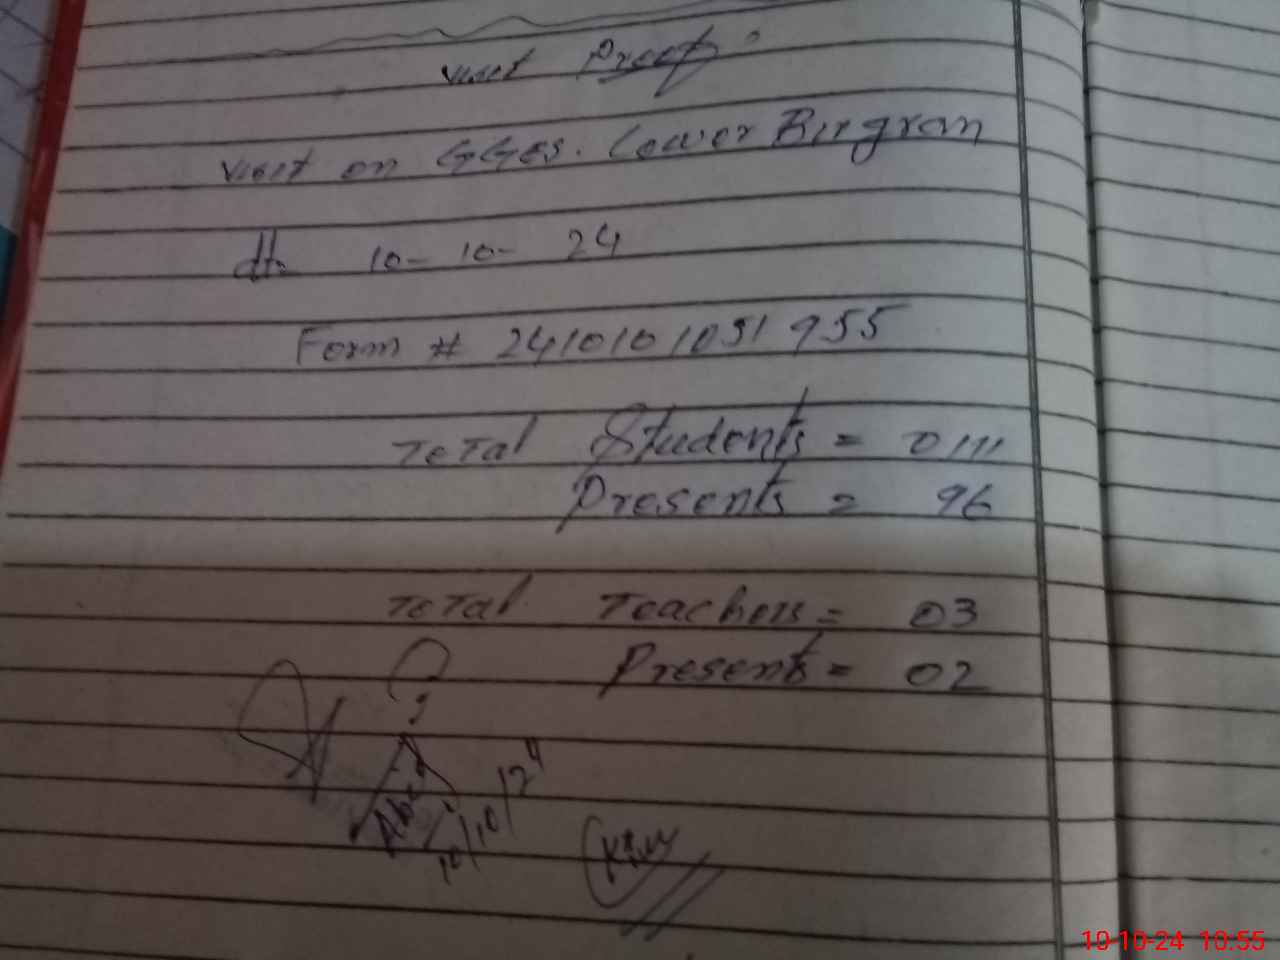 visit Proof
visit on GGES. Lower Bingran
dt. 10-10-24
Form # 2410101051955
Total Students = 0111
Presents = 96
Total Teachers = 03
Presents = 02
10/10/24
10-10-24 10:55